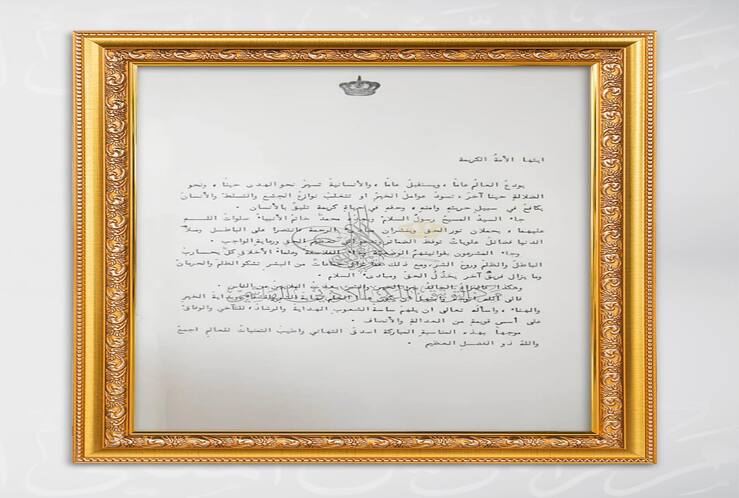 ايتها الامة الكريمة
يودع العالم عاما ، ويستقبل عاما ، والانسانية تسير نحو الهدى حينا ، ونحو
الضلالة حينا آخر ، تسود عوامل الخير او تتغلب نوازع الجشع والتسلط والانسان
يكافح في سبيل حريته وامنه ، وحقه في حياة كريمة تليق بالانسان .
جاء السيد المسيح رسول السلام ، محمد خاتم الأنبياء صلوات اللـه
عليهما ، يحملان نور الرحمة فانتصرا على الباطل وملآ
الدنيا فضائل علويات توقظ الضمائر الحق ورعاية الواجب .
وجاء المشرعون بقوانينهم الفلاسفة وعلماء الأخلاق كل يحارب
الباطل والظلم وروح الشر ، ومع ذلك من البشر تشكو الظلم والحرمان
وما يزال فريق آخر يخذل الحق ومبادىء السلام .
وهكذا الملايين من الناس .
فالى الخير
والهناء ، واسأله تعالى ان يلهم ساسة الشعوب الهداية والرشاد ، للتآخي والوفاق
على أسس قويمة من العدالة والانصاف .
موجها بهذه المناسبة المباركة اصدق التهاني واطيب التمنيات للعالم اجمع
واللـه ذو الفضل العظيم .